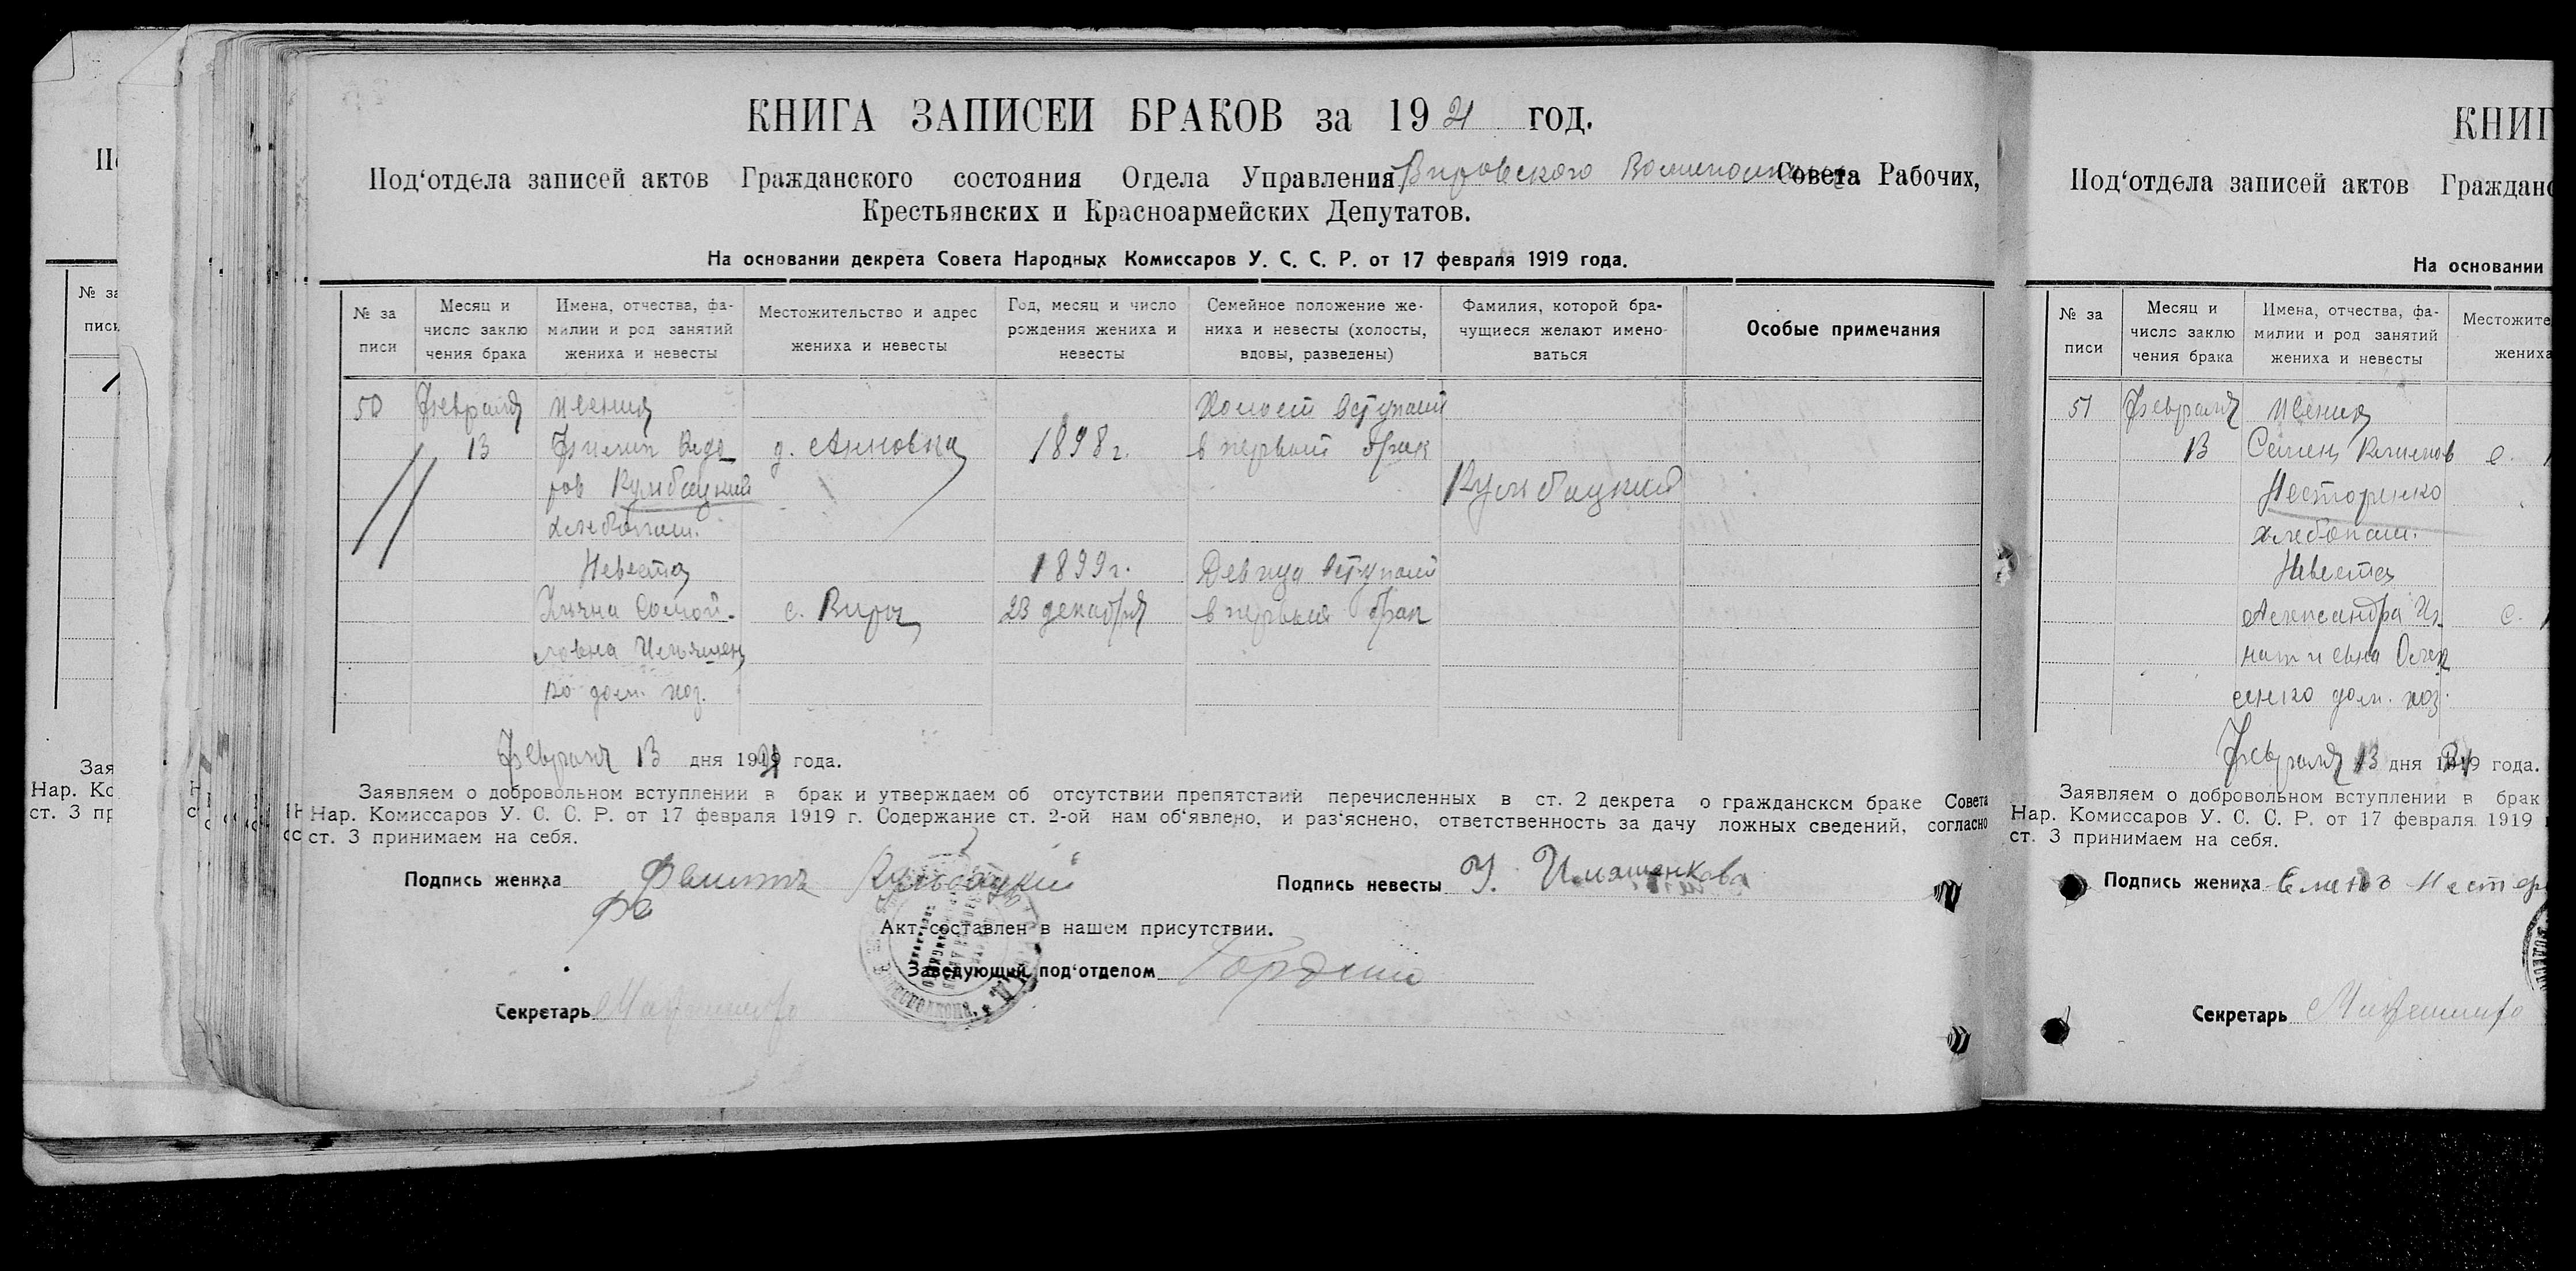 КНИГА ЗАПИСЕИ БРАКОВ за 1921 год.
Под‘отдела записей актов Гражданского состояния Отдела Управления Вировского Совета Рабочих,
Крестьянских и Красноармейских Депутатов.
На основании декрета Совета Народных Комиссаров У. С. С. Р. от 17 февраля 1919 года.
№ за
писи
Месяц и
число заклю
чения брака
Имена, отчества, фа-
милии и род занятий
жениха и невесты
Местожительство и адрес
жениха и невесты
Год, месяц и число
рождения жениха и
невесты
Семейное положение же-
ниха и невесты (холосты,
вдовы, разведены)
Фамилия, которой бра-
чущиеся желают имено-
ваться
Особые примечания
50 Февраля Жених Холост вступает
13 Филип д. Анновка 1898 г. в первый брак
ров Кульбацкий Кульбацкий
хлебопаш.
Невеста 1899 г. Девица вступает
Самой- с. Виры 23 декабря в первый брак
ловна Ильяшен
ко дом. хоз.
Февраля 13 дня 1921 года.
Заявляем о добровольном вступлении в брак и утверждаем об отсутствии препятствий перечисленных в ст. 2 декрета о гражданском браке Совета
Нар. Комиссаров У. С. С. Р. от 17 февраля 1919 г. Содержание ст. 2-ой нам об‘явлено, и раз‘яснено, ответственность за дачу ложных сведений, согласно
ст. 3 принимаем на себя.
Подпись жениха Кульбацкий Подпись невесты У. Ильяшенкова
Акт составлен в нашем присутствии.
Заведующий под‘отделом
Секретарь
КНИГ
Под‘отдела записей актов Гражданс
На основании
№ за
писи
Месяц и
число заклю
чения брака
Имена, отчества, фа-
милии и род занятий
жениха и невесты
Местожите
жениха
51 Февраля Жених
13 Семен с.
Несторенко
хлебопаш.
Невеста
Александра Иг с.
натиевна
енко дом. хоз.
Февраля 13 дня 1921 года.
Заявляем о добровольном вступлении в брак
Нар. Комиссаров У. С. С. Р. от 17 февраля 1919
ст. 3 принимаем на себя.
Подпись жениха
Секретарь
№ за
писи
Зая
Нар. Ко
ст. 3 пр